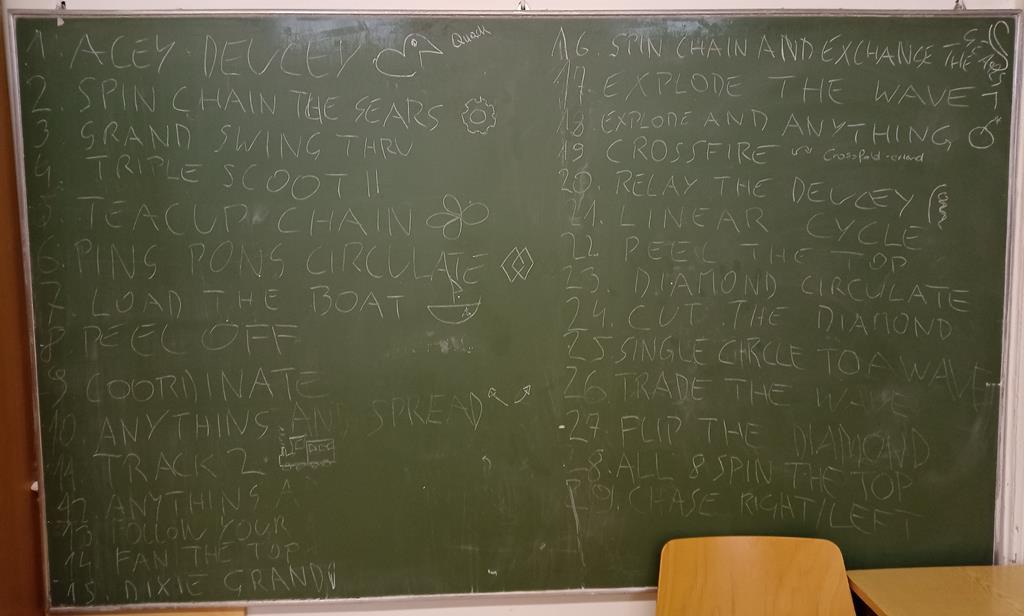 1. ACEY DEUCEY Quack
2. SPIN CHAIN THE GEARS
3. GRAND SWING THRU
4. TRIPLE SCOOT
5. TEACUP CHAIN
6. PING PONG CIRCULATE
7. LOAD THE BOAT
8. PEEL OFF
9. COORDINATE
10. ANYTHING AND SPREAD
11. TRACK 2
12. ANYTHING A
13. FOLLOW YOUR
14. FAN THE TOP
15. DIXIE GRAND
16. SPIN CHAIN AND EXCHANGE THE GEARS
17. EXPLODE THE WAVE
18. EXPLODE AND ANYTHING
19. CROSSFIRE
20. RELAY THE DEUCEY
21. LINEAR CYCLE
22 PEEL THE TOP
23. DIAMOND CIRCULATE
24. CUT THE DIAMOND
25 SINGLE CIRCLE TO A WAVE
26 TRADE THE WAVE
27. FLIP THE DIAMOND
28. ALL 8 SPIN THE TOP
29. CHASE RIGHT/LEFT